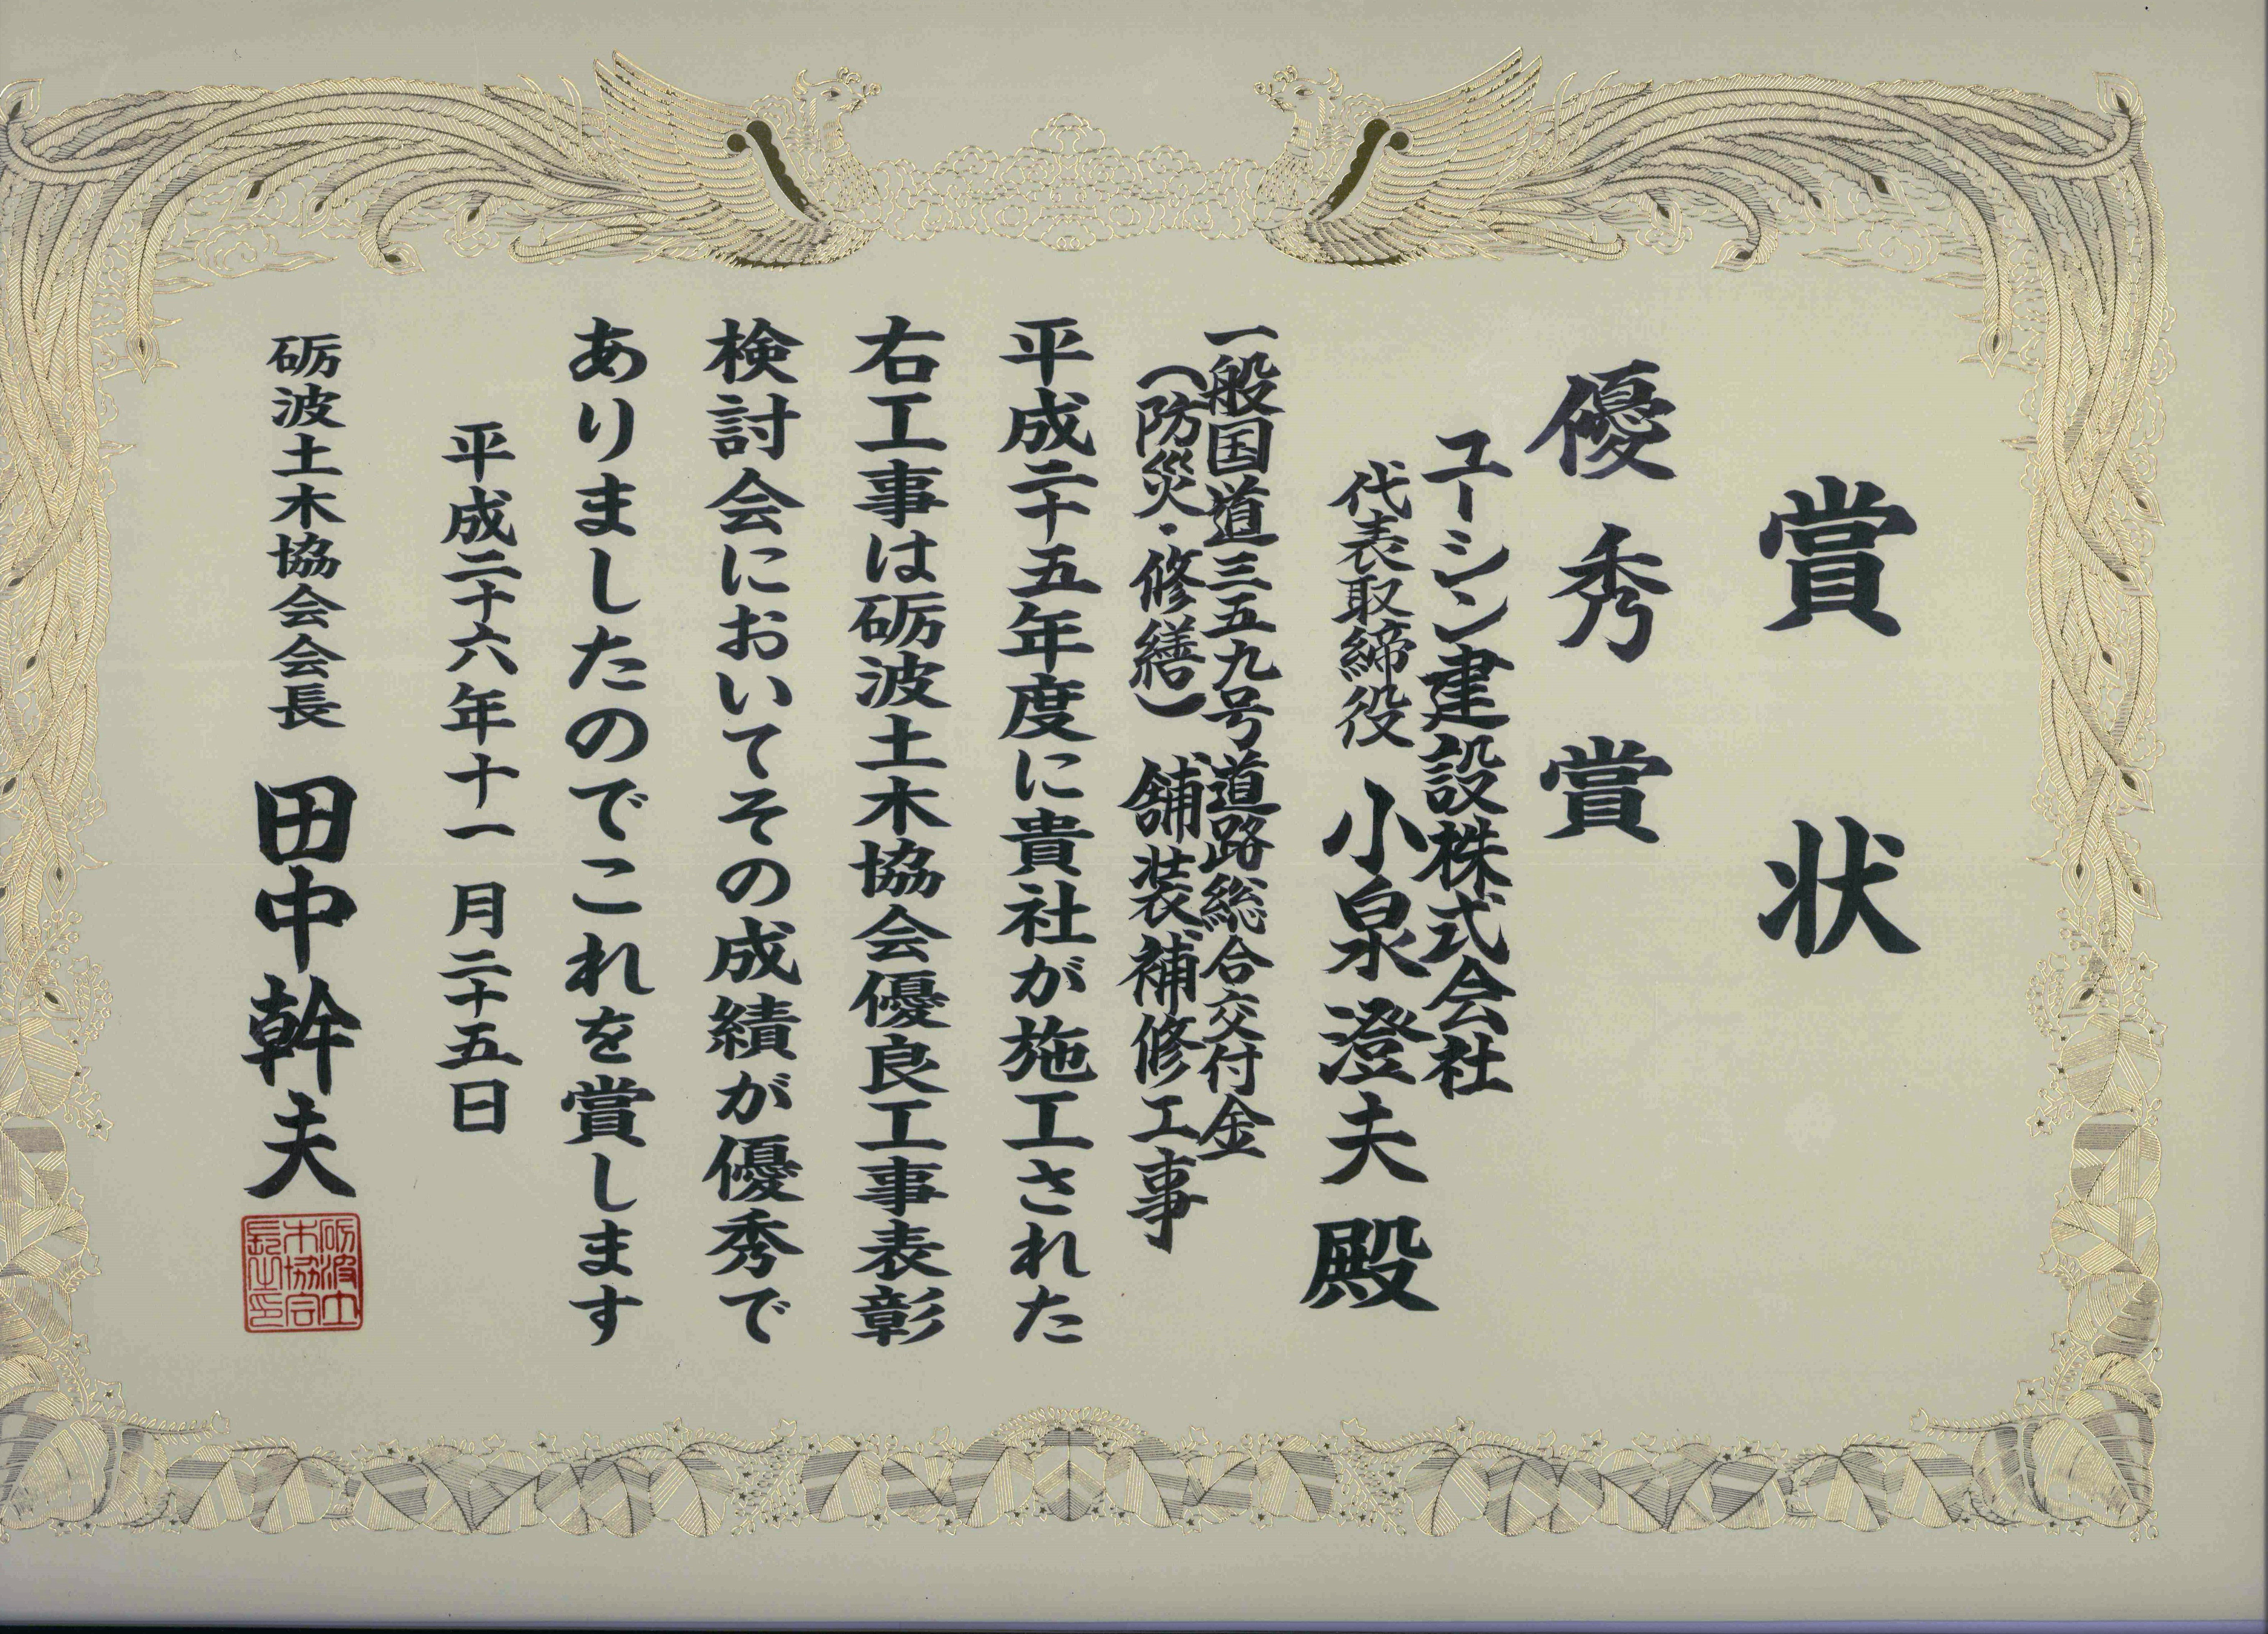 賞状
優秀賞
ユーシン建設株式会社
代表取締役 小泉澄夫殿
一般国道三五九号道路総合交付金
(防災・修繕)舗装補修工事
平成二十五年度に貴社が施工された
右工事は砺波土木協会優良工事表彰
検討会においてその成績が優秀で
ありましたのでこれを賞します
平成二十六年十一月二十五日
砺波土木協会会長 田中幹夫
砺波土
木協会
長之印